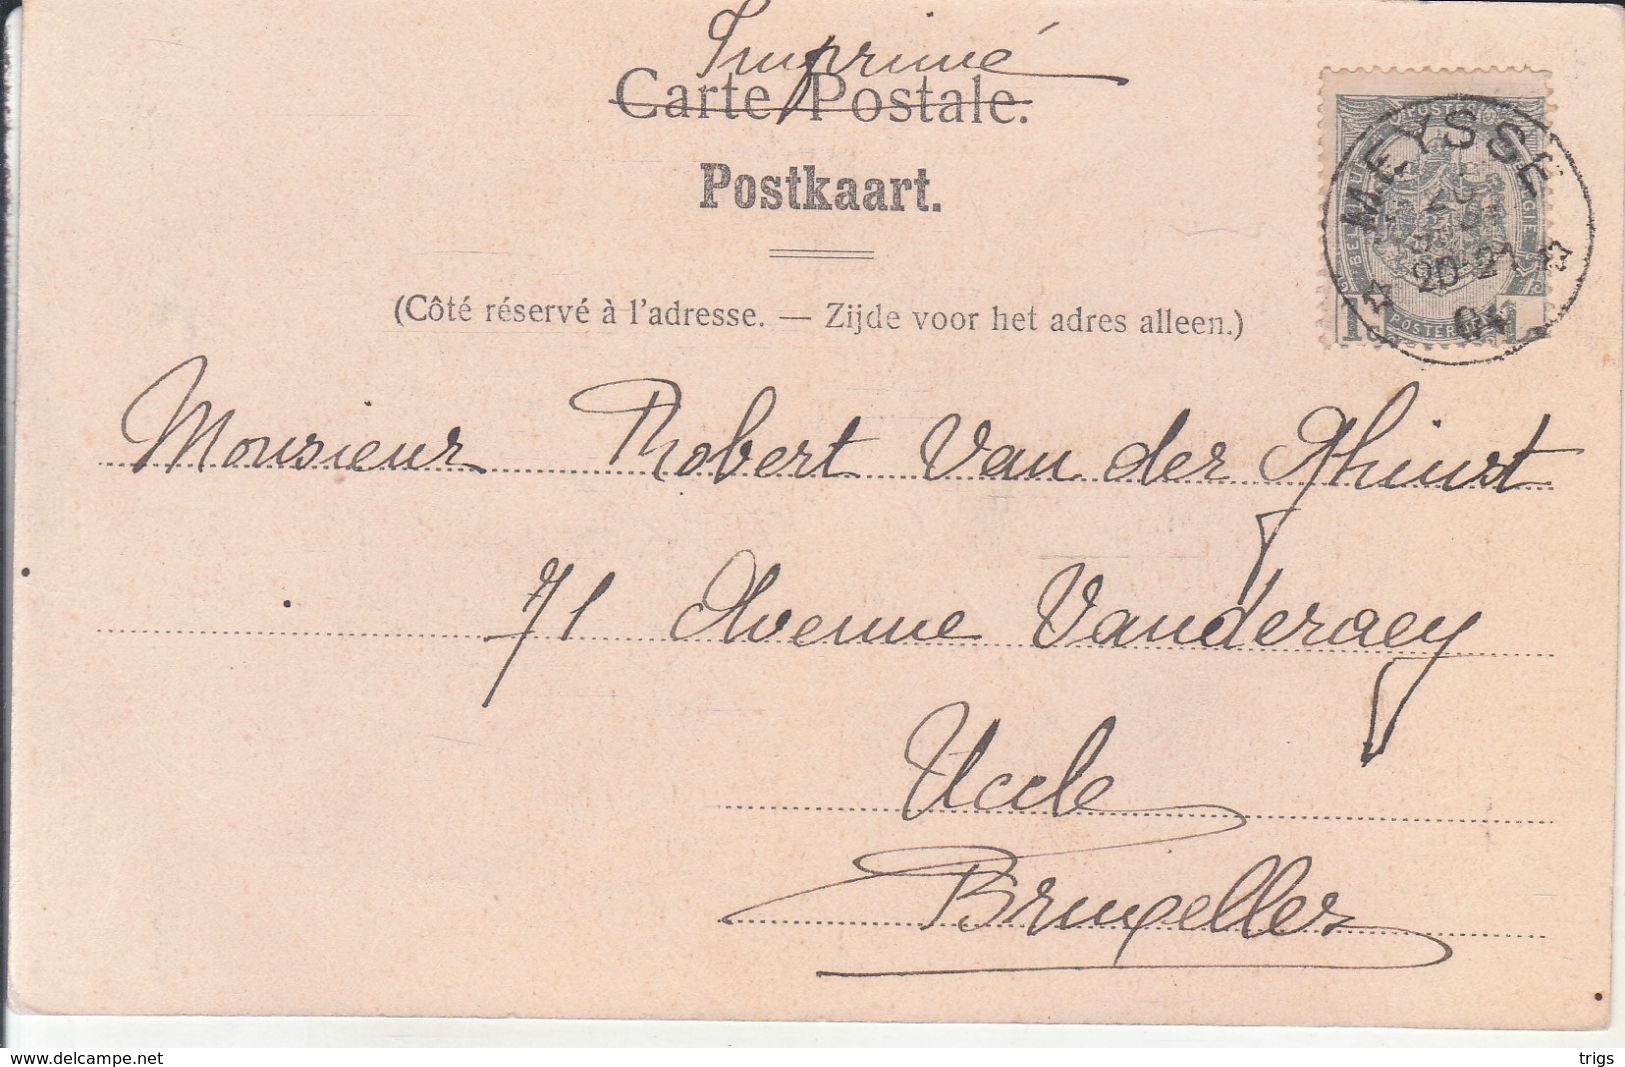 Imprimé
Carte Postale.
Postkaart.
(Côté réservé à l'adresse. — Zijde voor het adres alleen.)
MEYSSE
20-21
04
POSTES
Monsieur Robert Van der Ghinst
71 Avenue Vanderaey
Uccle
Bruxelles
www.delcampe.net
trigs